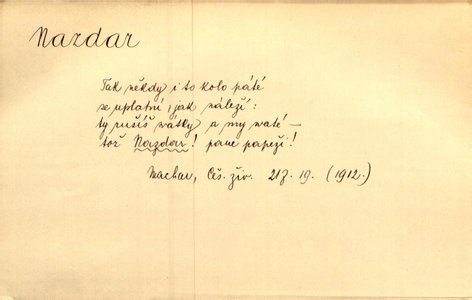 Nazdar
Tak někdy i to kolo páté
se uplatní, jak náleží:
ty rušíš svátky a my svaté –
tož Nazdar! pane papeži!
Machar, Čes. živ. 217. 19. (1912.)